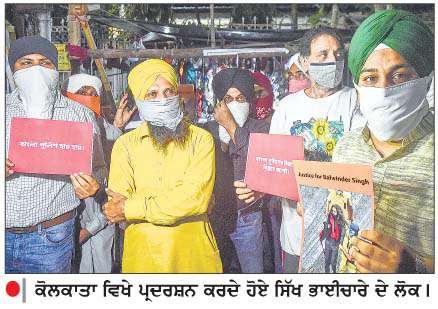 বাংলা পুলিশ হায় হায়
Justice for Balwinder Singh
ਕੋਲਕਾਤਾ ਵਿਖੇ ਪ੍ਰਦਰਸ਼ਨ ਕਰਦੇ ਹੋਏ ਸਿੱਖ ਭਾਈਚਾਰੇ ਦੇ ਲੋਕ।